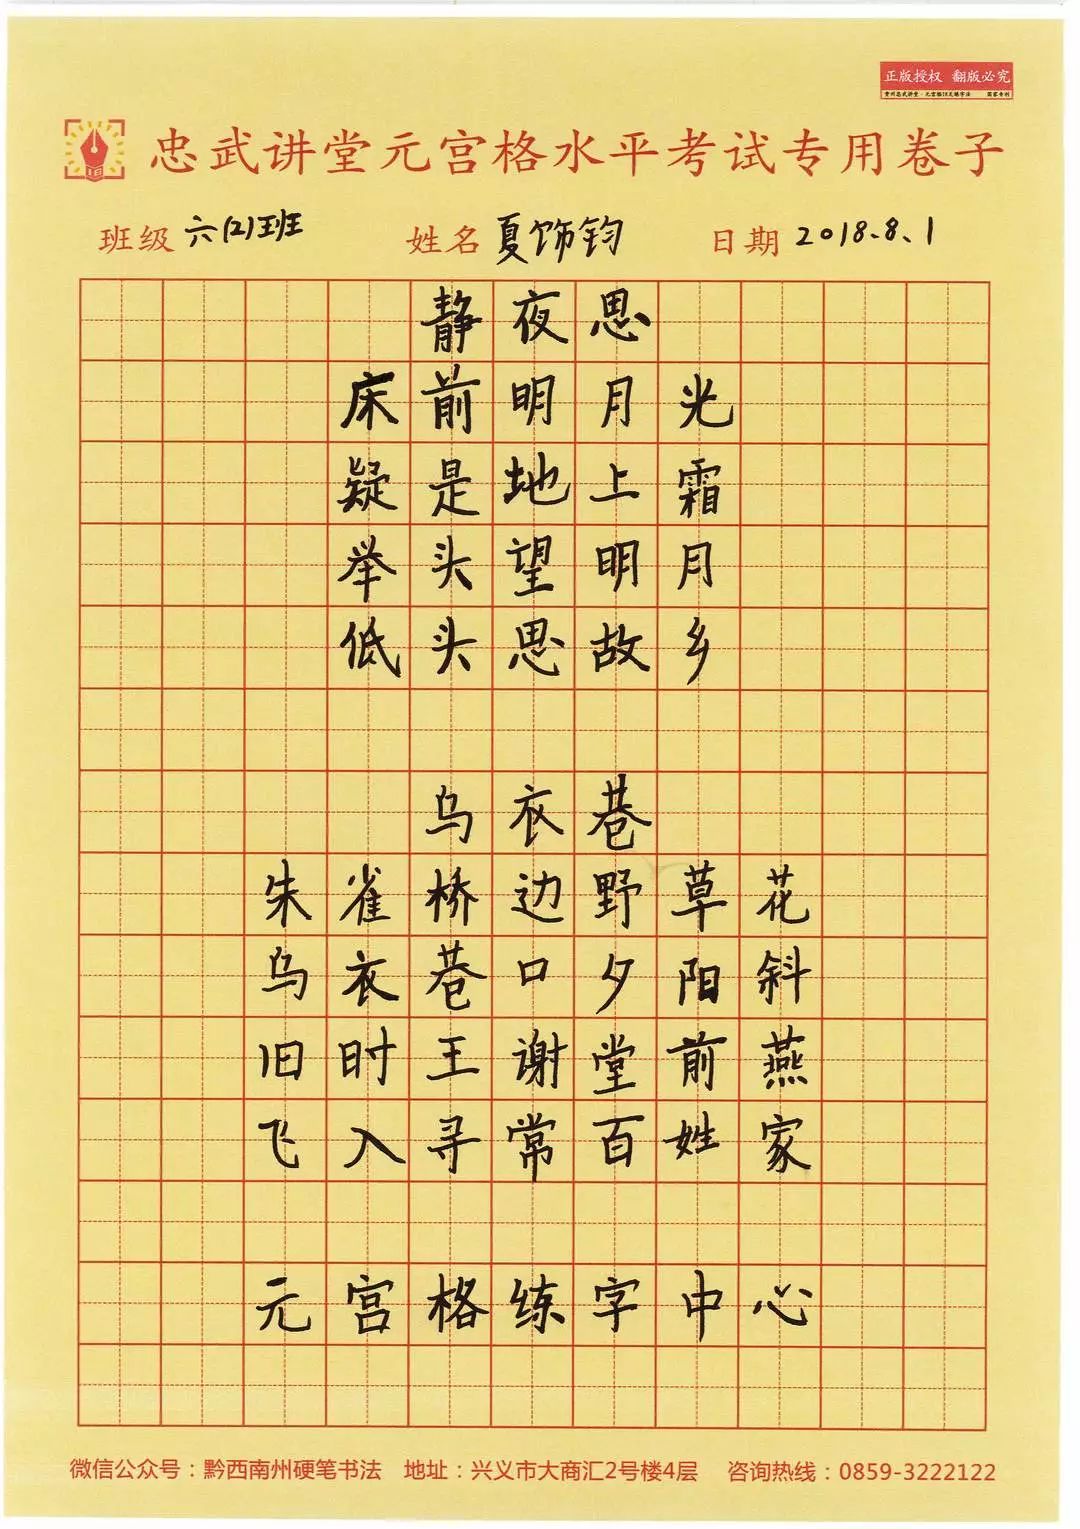 正版授权 翻版必究
忠武讲堂元宫格水平考试专用卷子
班级 六(2)班 姓名 夏饰钧 日期 2018.8.1
静夜思
床前明月光
疑是地上霜
举头望明月
低头思故乡
乌衣巷
朱雀桥边野草花
乌衣巷口夕阳斜
旧时王谢堂前燕
飞入寻常百姓家
元宫格练字中心
微信公众号：黔西南州硬笔书法 地址：兴义市大商汇2号楼4层 咨询热线：0859-3222122